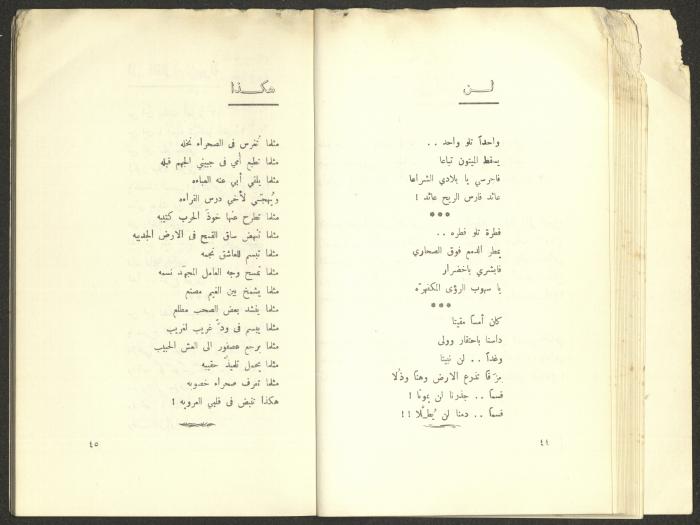 لـن
واحداً تلو واحد . .
يسقط الميتون تباعا
فاجرسي يا بلادي الشراعا
عائد فارس الريح عائد !
***
قطرة تلو قطره . .
يمطر الدمع فوق الصحاري
فابشري باخضرار
يا سهوب الرؤى المكفهرّه
***
كان أمساً مقيتا
داسنا باحتقار وولى
وغداً . . لن نبيتا
مزقاً تذرع الارض وهناً وذُلا
قسماً . . جذرنا لن يموتا !
قسماً . . دمنا لن يُطـَلّا ! !
٤١
هكـذا
مثلما تُغرس فى الصحراء نخله
مثلما تطبع أمي فى جبيني الجهم قبله
مثلما يلقي أبي عنه العباءه
ويُهجّي لأخي درس القراءه
مثلما تطرح عنها خوذَ الحرب كتيبه
مثلما تنهض ساق القمح فى الارض الجديبه
مثلما تبسم للعاشق نجمه
مثلما تمسح وجه العامل المجهد نسمه
مثلما يشمخ بين الغيم مصنع
مثلما ينشد بعض الصحب مطلع
مثلما يبسم فى ودّ غريب لغريب
مثلما يرجع عصفور الى العش الحبيب
مثلما يحمل تلميذ حقيبه
مثلما تعرف صحراء خصوبه
هكذا تنبض فى قلبي العروبه !
٤٥